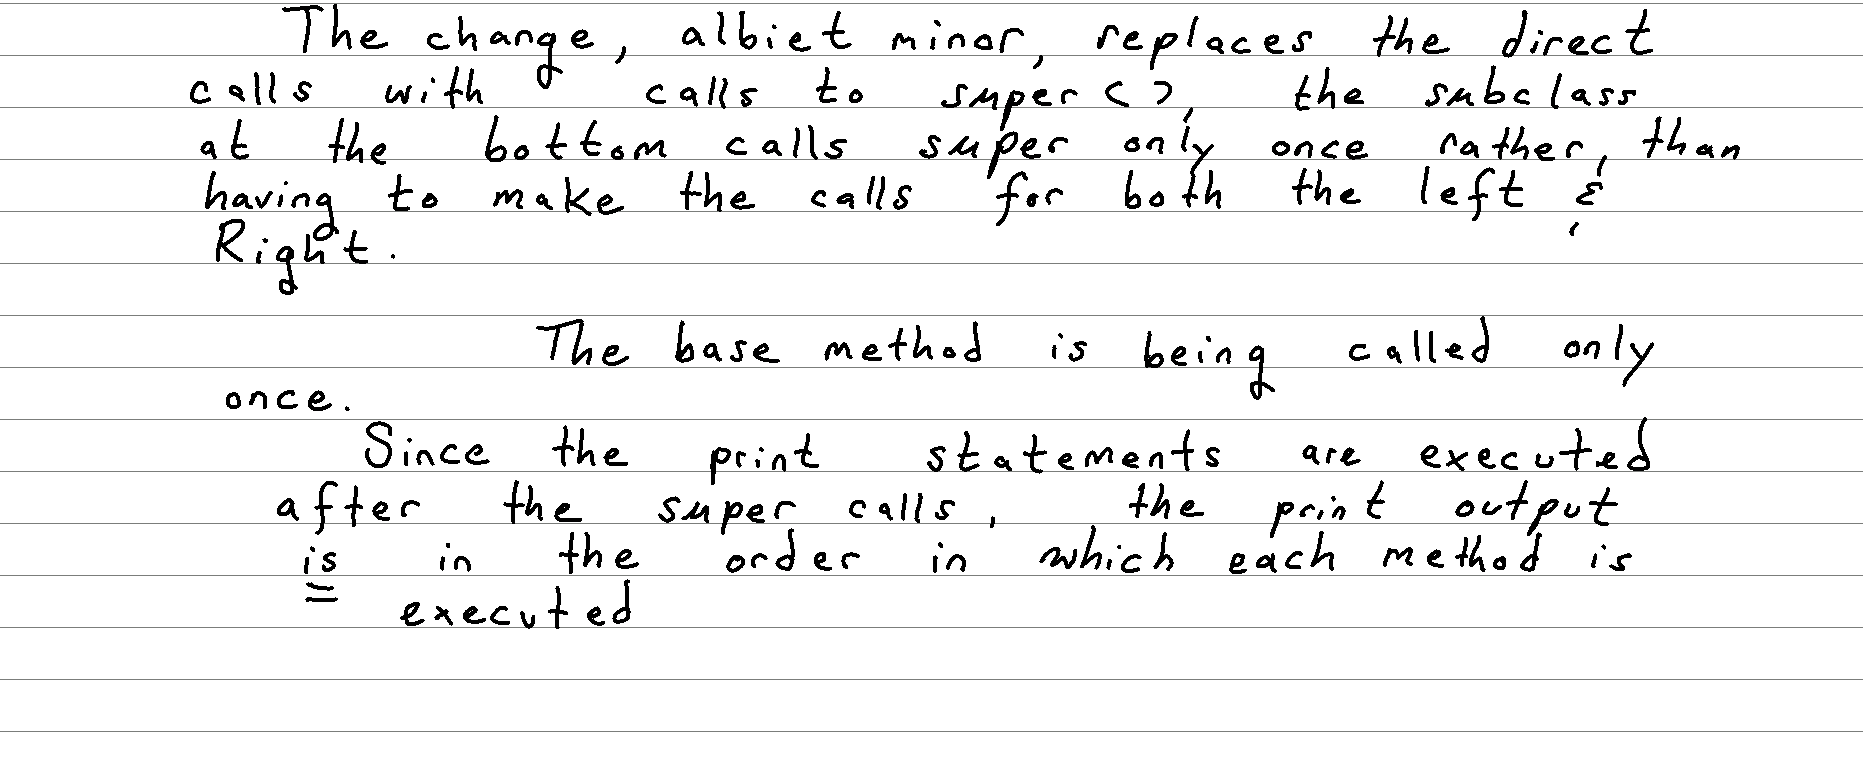 The change, albiet minor, replaces the direct
calls with calls to super(), the subclass
at the bottom calls super only once rather, than
having to make the calls for both the left &
Right.
The base method is being called only
once.
Since the print statements are executed
after the super calls, the print output
is in the order in which each method is
executed